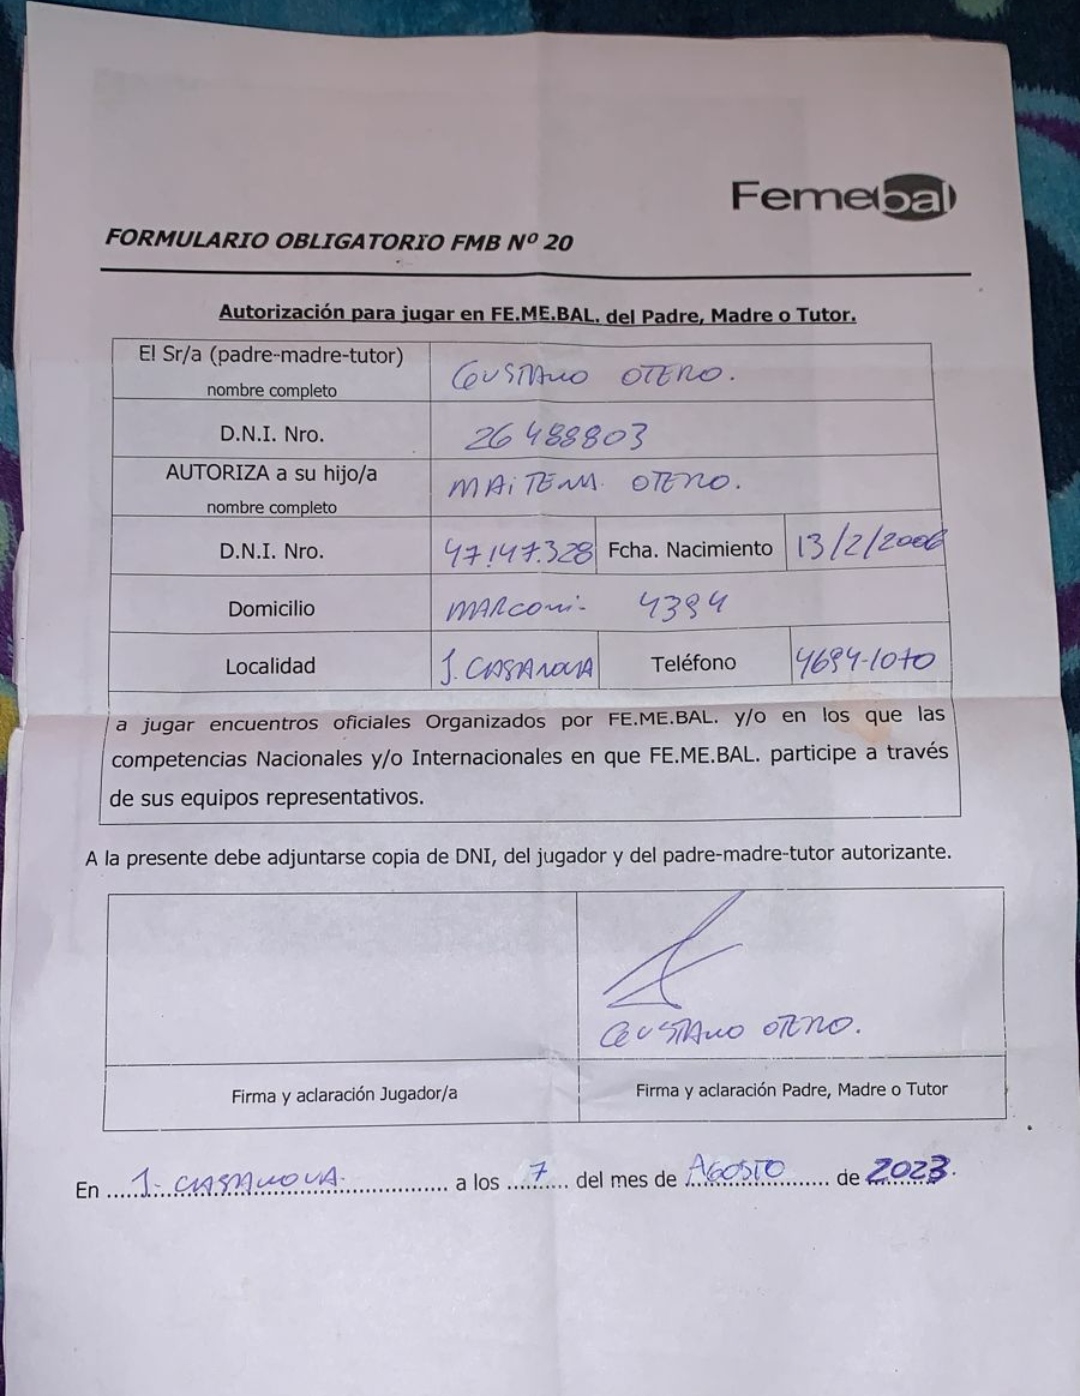 Femebal
FORMULARIO OBLIGATORIO FMB Nº 20
Autorización para jugar en FE.ME.BAL. del Padre, Madre o Tutor.
El Sr/a (padre-madre-tutor)
nombre completo
GUSTAVO OTERO.
D.N.I. Nro.
26488803
AUTORIZA a su hijo/a
nombre completo
MAITENA. OTERO.
D.N.I. Nro.
47.147.328
Fcha. Nacimiento
13/2/2006
Domicilio
MARCONI- 4394
Localidad
I. CASANOVA
Teléfono
4694-1070
a jugar encuentros oficiales Organizados por FE.ME.BAL. y/o en los que las
competencias Nacionales y/o Internacionales en que FE.ME.BAL. participe a través
de sus equipos representativos.
A la presente debe adjuntarse copia de DNI, del jugador y del padre-madre-tutor autorizante.
GUSTAVO OTERO.
Firma y aclaración Jugador/a
Firma y aclaración Padre, Madre o Tutor
En ..... I- CASANOVA. ..... a los ... 7 ... del mes de AGOSTO ..... de 2023.